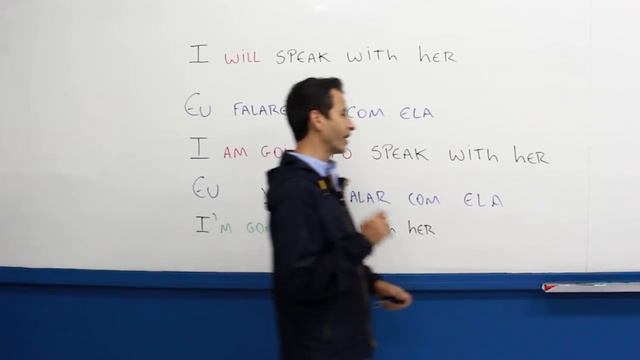 I will SPEAK WITH her
EU FALARE COM ELA
I AM GOI O SPEAK WITH her
EU ALAR COM ELA
I'M GO her